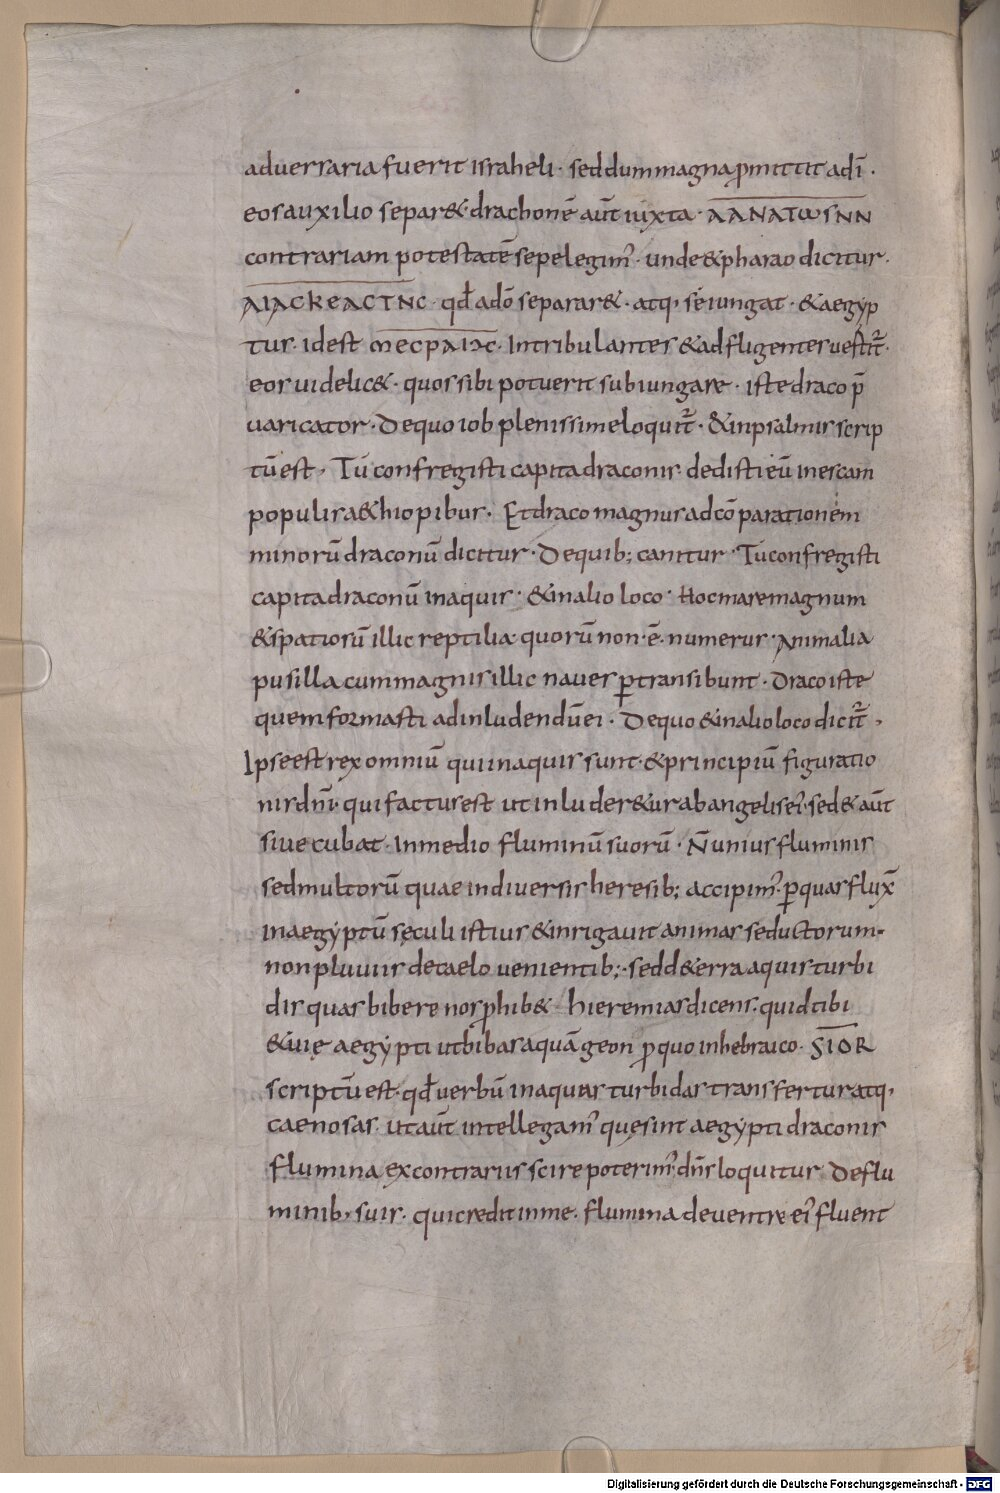 adversaria fuerit israheli · sed dum magna ꝑmittit ad ī ·
eos auxilio separ& · drachonē aūt iuxta · ΑΛΝΑΤωSΝΝ
contrariam potestatē sepelegim᾽ · unde & pharao dicitur ·
ΑΙΑϹΚΕΑϹΤΝϹ · qđ a dō separar& · atq, seiungat · & aegyp
tus · id est ΜΕϹΡΑΙΝϹ · In tribulantes & adfligentes vestit̄ ·
eos uidelic& · quos sibi potuerit subiungare · iste draco p̄
uaricator · De quo iob plenissime loquit̄ · & in psalmis scrip
tū est, Tu confregisti capita draconis · dedisti eū in escam
populis a&hiopibus · Et draco magnus ad cōparationem
minorū draconū dicitur · De quib; canitur · Tu confregisti
capita draconū in aquis · & in alio loco · Hoc mare magnum
& spatiorū illic reptilia quorū non · ē · numerus · Animalia
pusilla cum magnis illic naves ꝑtransibunt · Draco iste
quem formasti ad inludendū ei · De quo & in alio loco dicit̄ ,
Ipse est rex omniū qui in aquis sunt · & principiū figuratio
nis dn̄i · qui factus est ut inluder&ur ab angelis ei᾽ · sed & aūt
sive cubat · In medio fluminū suorū · N̄ unius fluminis
sed multorū quae in diversis heresib; accipim᾽ · ꝑ quas flux̄
in aegyptū sęculi istius & inrigavit animas seductorum ·
non pluviis de caelo venientib; · sed d& erra aquis turbi
dis quas bibere nos ꝓhib& · hieremias dicens · quid tibi
& vię aegypti ut bibas aquā geon ꝑ quo in hebraico · SIOR
scriptū est · qđ verbū in aquas turbidas transfertur atq,
caenosas · ut aūt intellegam᾽ quę sint aegypti draconis
flumina ex contrariis scire poterim᾽ · dn̄s loquitur · De flu
minib, suis · qui credit in me · flumina de ventre ei᾽ fluent
Digitalisierung gefördert durch die Deutsche Forschungsgemeinschaft - DFG